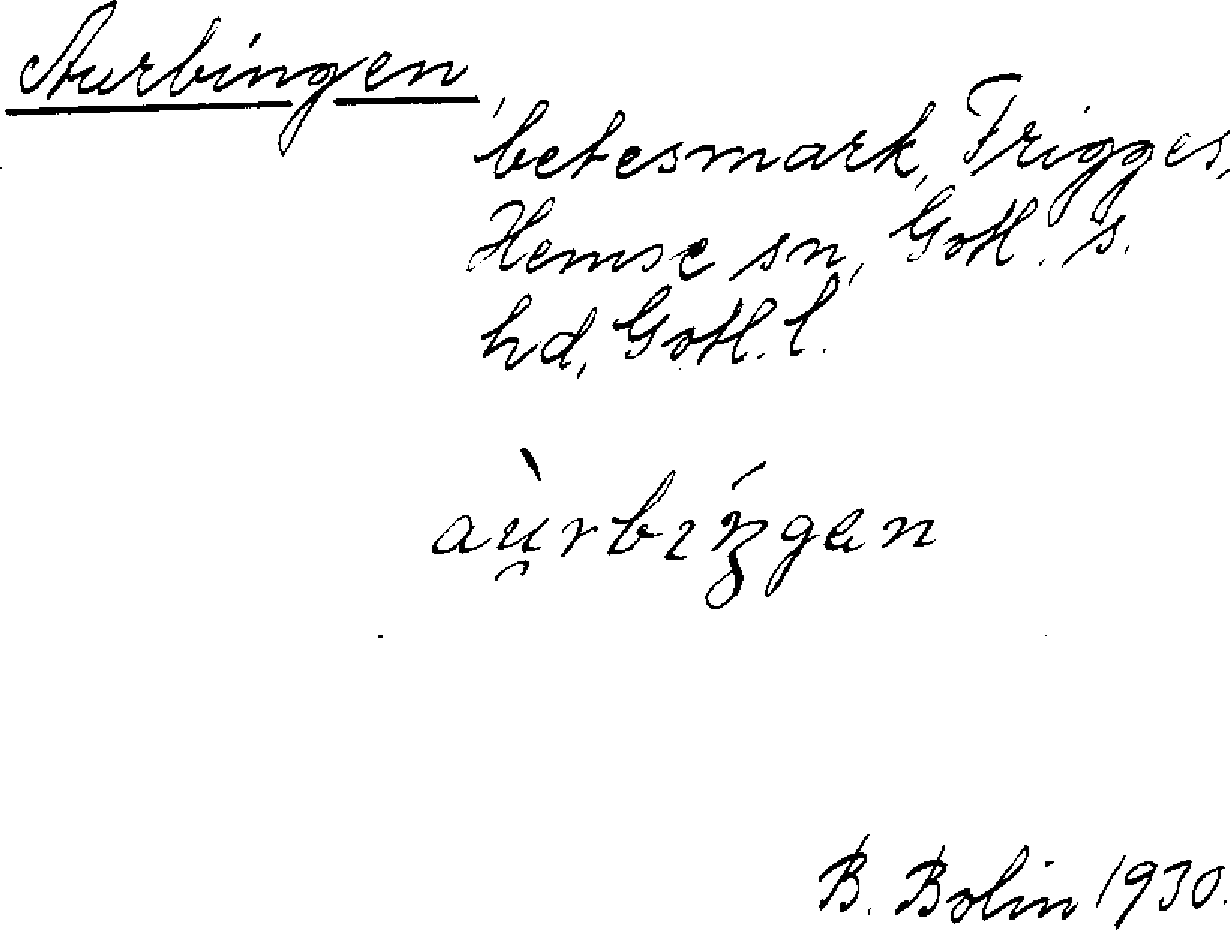 Aurbingen,
betesmark, Trigges,
Hemse sn, Gotl. s.
hd, Gotl. l.
aù̯rbɪŋ́gən
B. Bolin 1930.